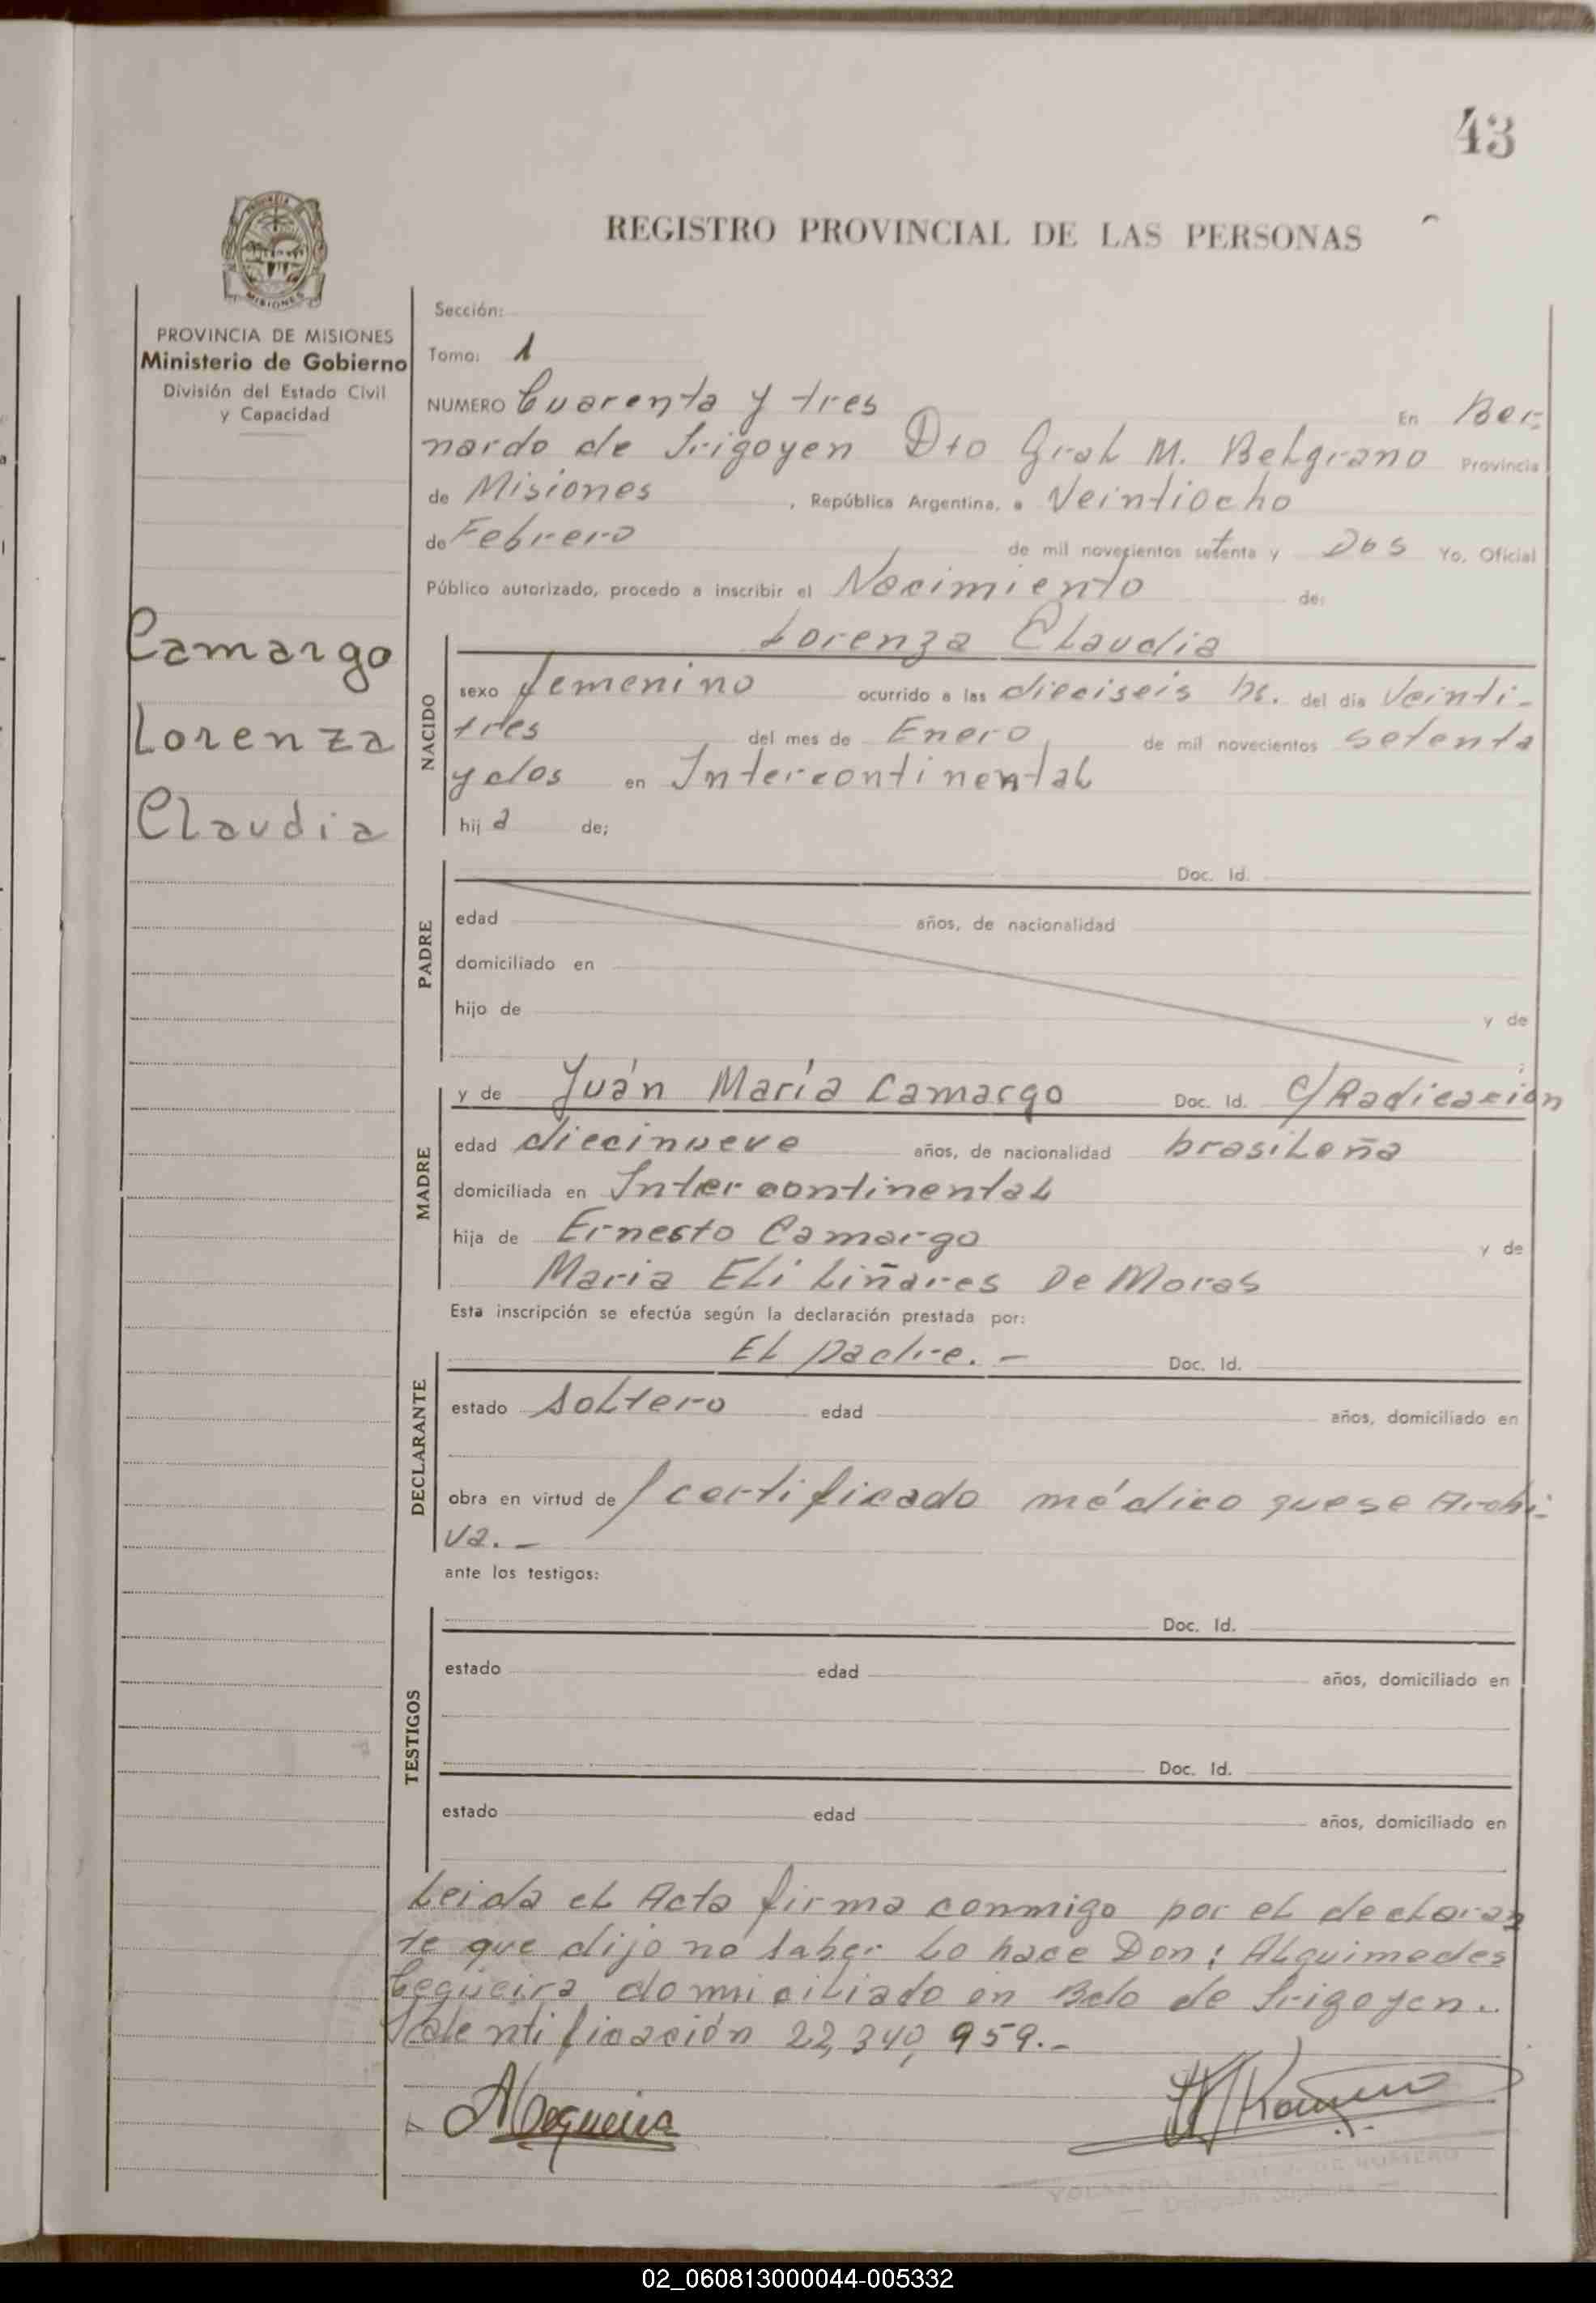 43
REGISTRO PROVINCIAL DE LAS PERSONAS
PROVINCIA DE MISIONES
Ministerio de Gobierno
División del Estado Civil
y Capacidad
Camargo
Lorenza
Claudia
Sección:
Tomo: 1
NUMERO Cuarenta y tres En Ber-
nardo de Irigoyen Dto Gral M. Belgrano Provincia
de Misiones , República Argentina, a Veintiocho
de Febrero de mil novecientos setenta y Dos Yo, Oficial
Público autorizado, procedo a inscribir el Nacimiento de:
Lorenza Claudia
NACIDO
sexo femenino ocurrido a las dieciseis hs. del dia Veinti-
tres del mes de Enero de mil novecientos setenta
y dos en Intercontinental
hij a de;
PADRE
Doc. Id.
edad años, de nacionalidad
domiciliado en
hijo de y de
MADRE
y de Juan María Camargo Doc. Id. C/Radicación
edad diecinueve años, de nacionalidad brasileña
domiciliada en Intercontinental
hija de Ernesto Camargo y de
Maria Eli Liñares De Moras
Esta inscripción se efectúa según la declaración prestada por:
DECLARANTE
El padre. - Doc. Id.
estado soltero edad años, domiciliado en
obra en virtud de / certificado médico que se Archi-
va. -
ante los testigos:
TESTIGOS
Doc. Id.
estado edad años, domiciliado en
Doc. Id.
estado edad años, domiciliado en
Leida el Acta firma conmigo por el declaran
te que dijo no saber lo hace Don: Alquimedes
Cegueira domiciliado en Bdo de Irigoyen..
Identificación 22,340,959.-
02_060813000044-005332